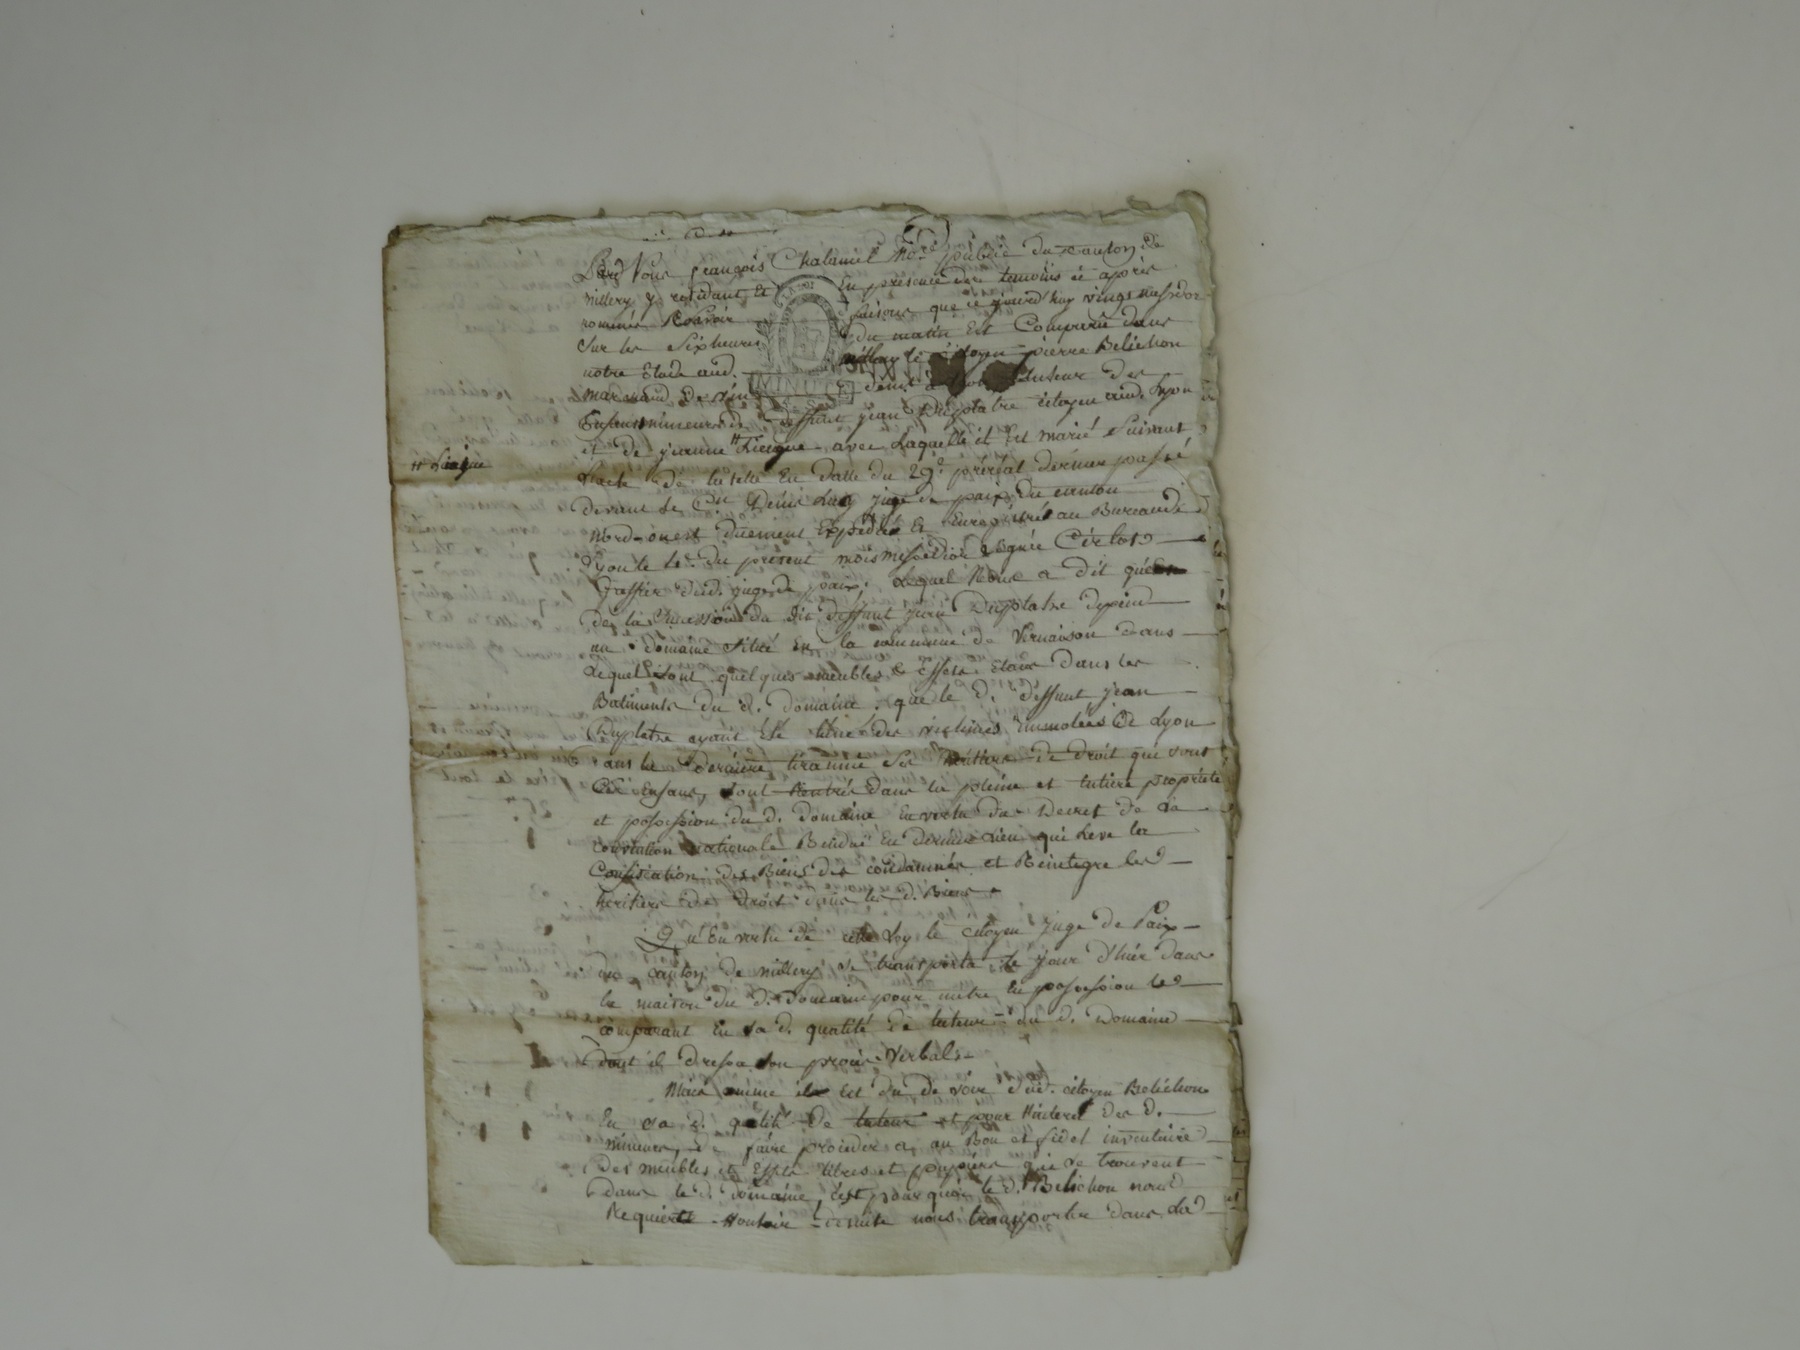 Nous françois Chalamel No.re public du canton de
millery y residant, Et En presence des temoins cy après
nommés faisons que ce jourd'huy vingt messidor
sur les six heures du matin Est Comparu dans
notre Etude aud. millery le citoyen pierre Belichon
marchand de vin tuteur des
Enfans mineurs deffunt jean Duplatre citoyen aud. Lyon
et de jeanne avec Laquelle il Est marié Suivant
L'acte de tutelle En datte du 29e prérial dernier passé
devant le Cn juge de paix du canton
Nord-ouest duement Expédié Et Enregistré au Bureau de
Lyon le du présent mois messidor signée
Greffier dud. juge de paix, Lequel Nous a dit que
de la succession du dit deffunt jean Duplatre depend
un domaine situé En la commune de Vernaison dans
Lequel sont quelques meubles & Effets Etans dans les
Batiments du d. domaine. que le d. deffunt jean
Duplatre ayant Eté une des victimes immolées à Lyon
dans la dernière tirannie ses héritiers de droit qui sont
ses Enfans, sont Rentrés dans la pleine et entière propriété
et possession du d. domaine En vertu du Decret de La
convention nationale Rendu En dernier lieu qui Leve la
Confiscation des Biens des condamnés et Reintegre les
héritiers de droit dans les d. Biens
Qu'En vertu de cette Loy le citoyen juge de Paix
du canton de millery se transporta le jour d'hier dans
la maison du d. Domaine pour metre En possession le
comparant En sa d. qualité de tuteur du d. Domaine
dont il dressa son procès Verbal
Mais comme il Est du devoir dud. citoyen Belichon
En sa d. qualité de tuteur et pour l'interet des d.
mineurs, de faire proceder a un Bon et fidel inventaire
des meubles et Effets titres et papiers qui se trouvent
dans le d. domaine, c'est pourquoi le d. Belichon nous
Requiert de suite nous transporter dans La
MINUTE